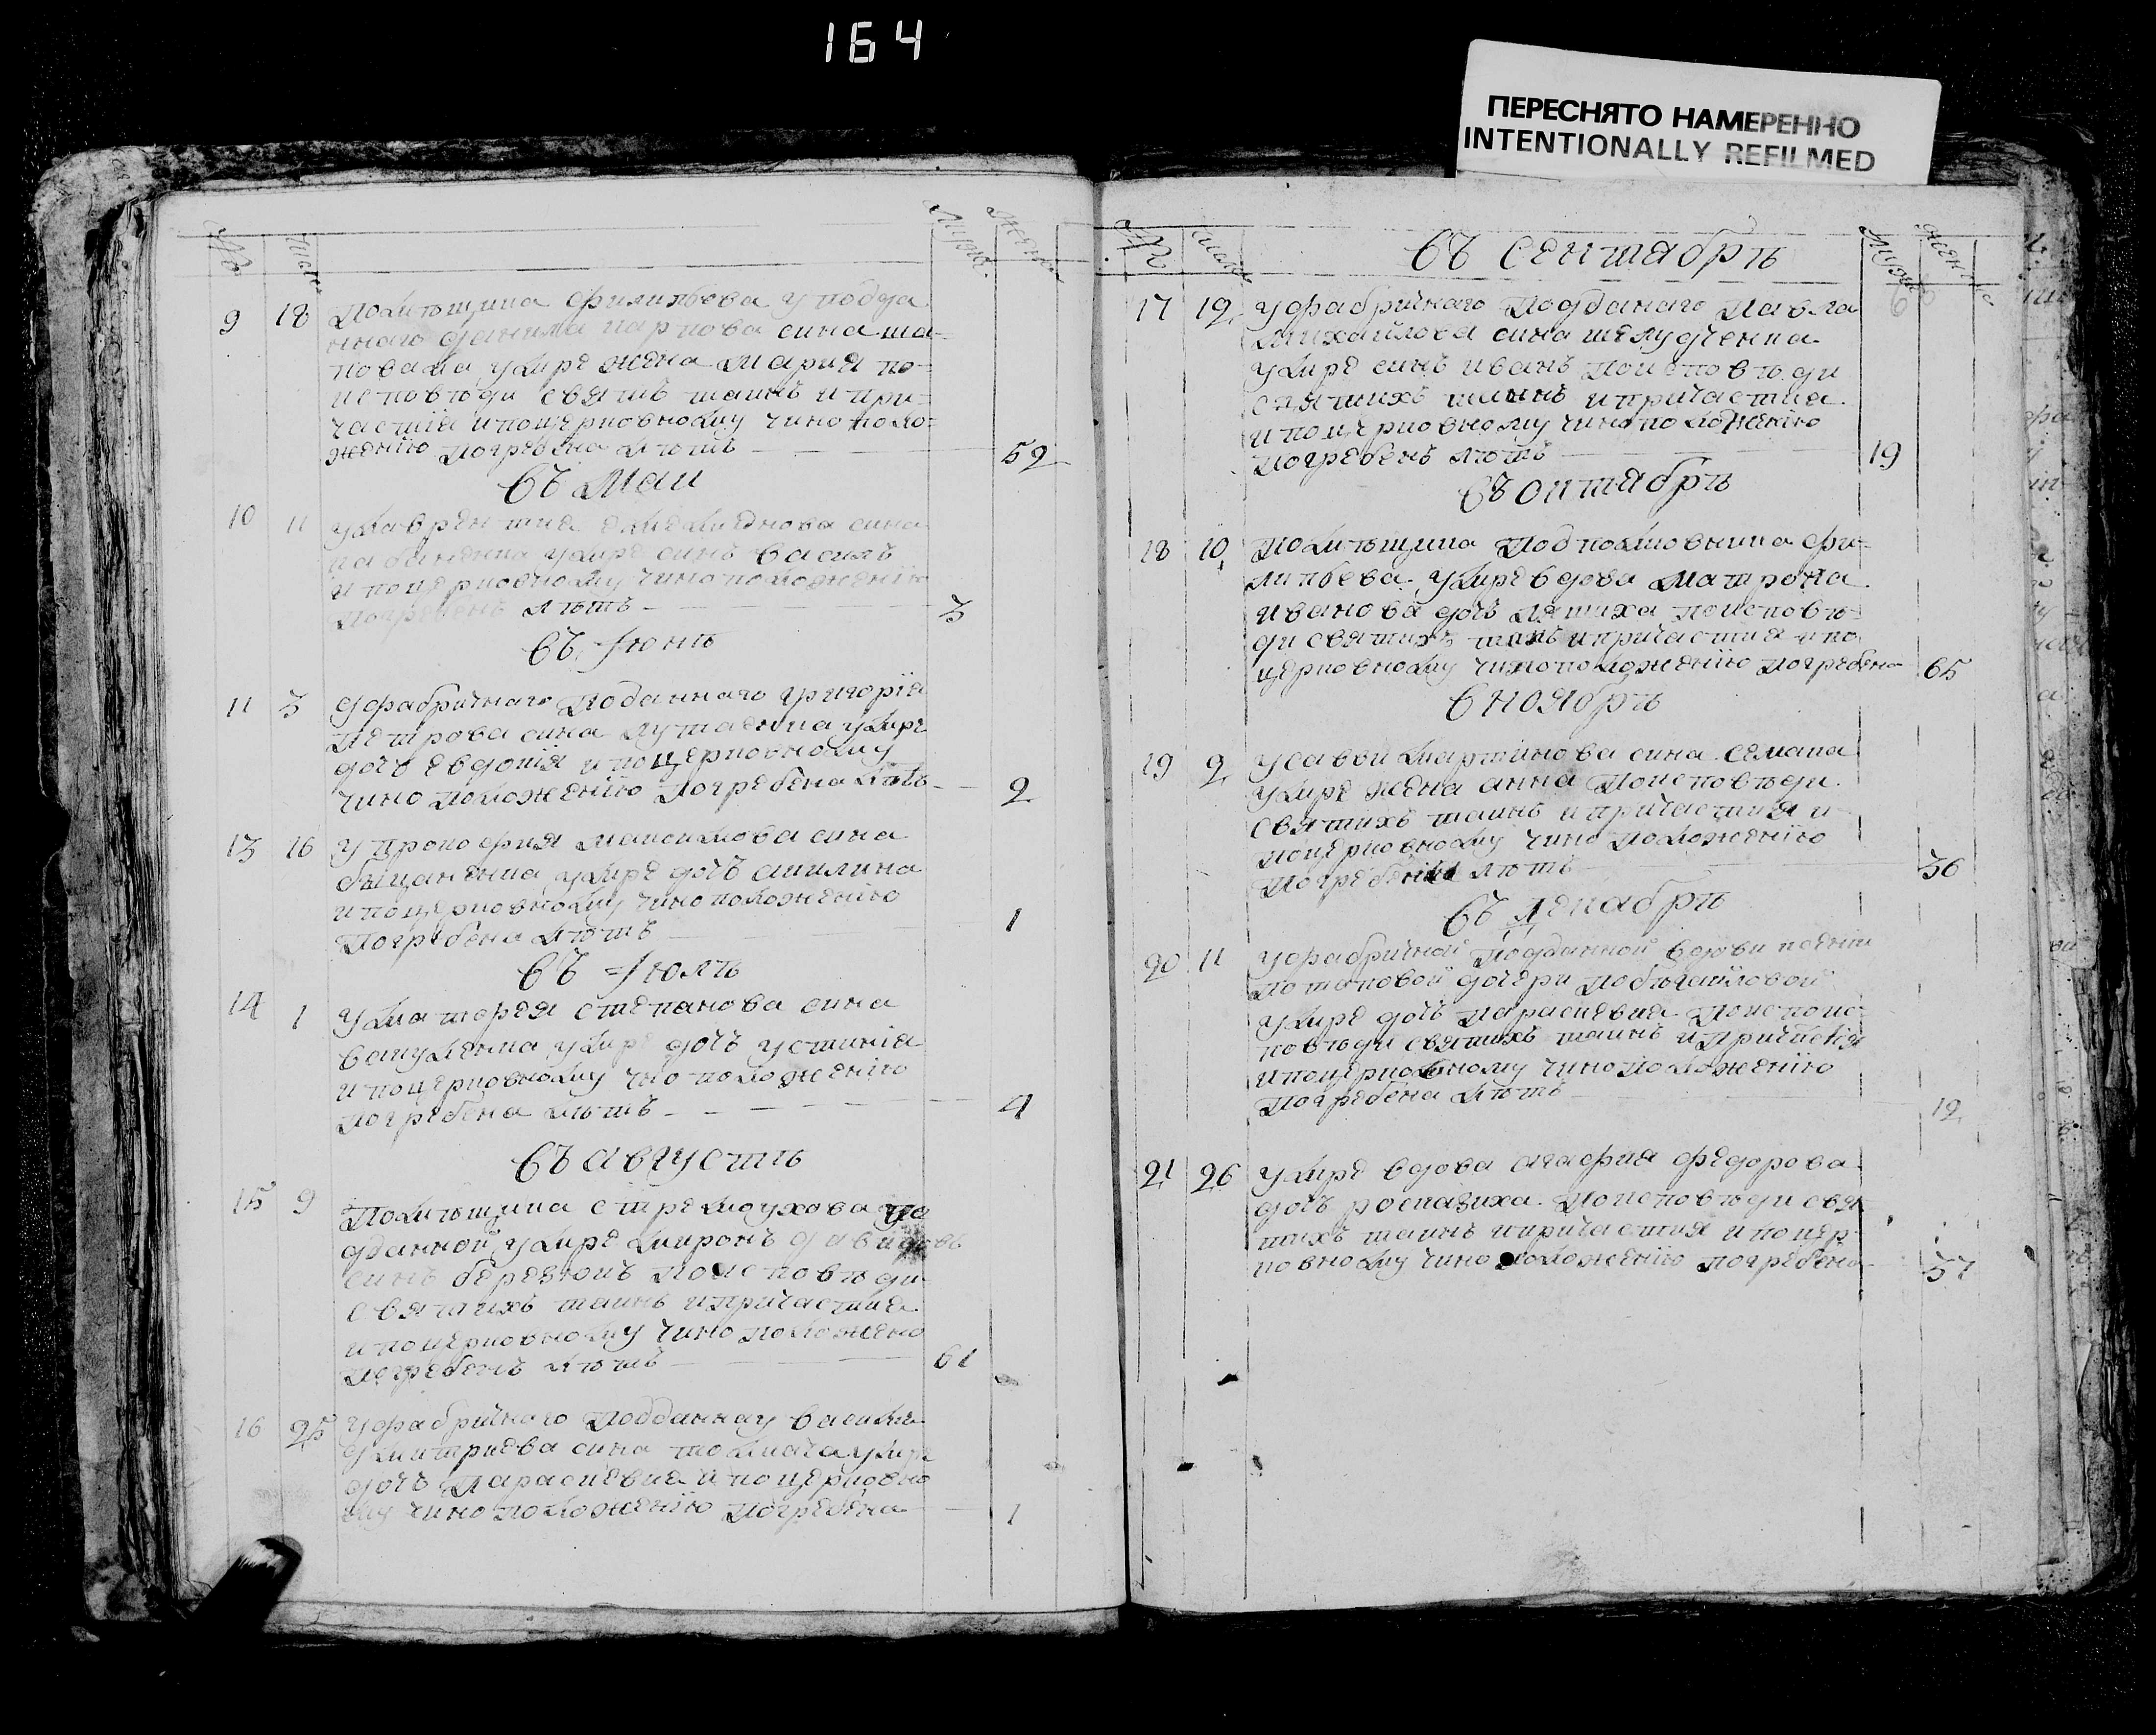 164
ПЕРЕСНЯТО НАМЕРЕННО
INTENTIONALLY REFILMED
№ числ мужс женс
9 18 помѣщика филипьева у подда
ннаго данила карпова сина ша-
повала умре жена мария по-
исповѣди святъ таинъ и при-
частія и поцерковному чиноположо-
женію погребена лѣтъ 52
въ маи
10 11 у лаврентия емелиянова сина
умре синъ василъ
и поцерковному чиноположению
погребенъ лѣтъ 3
въ Iюнѣ
11 3 у фабричнаго подданнаго григорія
петрова сина лутаенка умре
дочъ евдокія и поцерковному
чино положенію погребена лѣтъ 2
13 16 у прокофия максимова сина
умре дочъ акилина
и поцерковному чиноположенію
погребена лѣтъ 1
въ Iюлѣ
14 1 у матфея степанова сина
вакуленка умре дочъ устинія
и поцерковному чно положенію
погребена лѣтъ 4
въ августѣ
15 9 помѣщика стремоухова по
дданной умре миронъ давидовъ
синъ березюкъ поисповѣди
святихъ таинъ и причастия
и поцерковному чино положено
погребенъ лѣтъ 61
16 25 у фабричнаго подданнау василия
дмитриева сина толмача умре
дочъ параскевия и поцерковно
му чино положенію погребена 1
№ числ мужс женс
въ сентябрѣ
17 12 у фабричнаго подданаго павла
михайлова сина шелудченка
умре синъ иванъ поисповѣди
святихъ таинъ и причастия
и поцерковному чинположенію
погребенъ лѣтъ 19
въ октябрѣ
18 10 помѣщика подполковника фи-
липьева умре вдова матрона
иванова дочъ ляшиха поисповѣ-
ди святихъ таинъ и причастия и по
церковному чиноположенію погребена 65
в ноябрѣ
19 2 у савви мартинова сина семака
умре жена анна поисповѣди
святихъ таинъ и причастия и
поцерковному чино положенію
погребенна лѣтъ 36
въ декабрѣ
20 11 у фабричной подданной вдови
потаповой дочери
умре дочъ параскевия поиспоис-
повѣди святихъ таинъ и причастія
и поцерковному чиноположению
погребена лѣтъ 12
21 26 умре вдова агафия федорова
дочъ роспазиха поисповѣди свя
тихъ таинъ и причастия и поцер
ковному чино положенію погребена 57